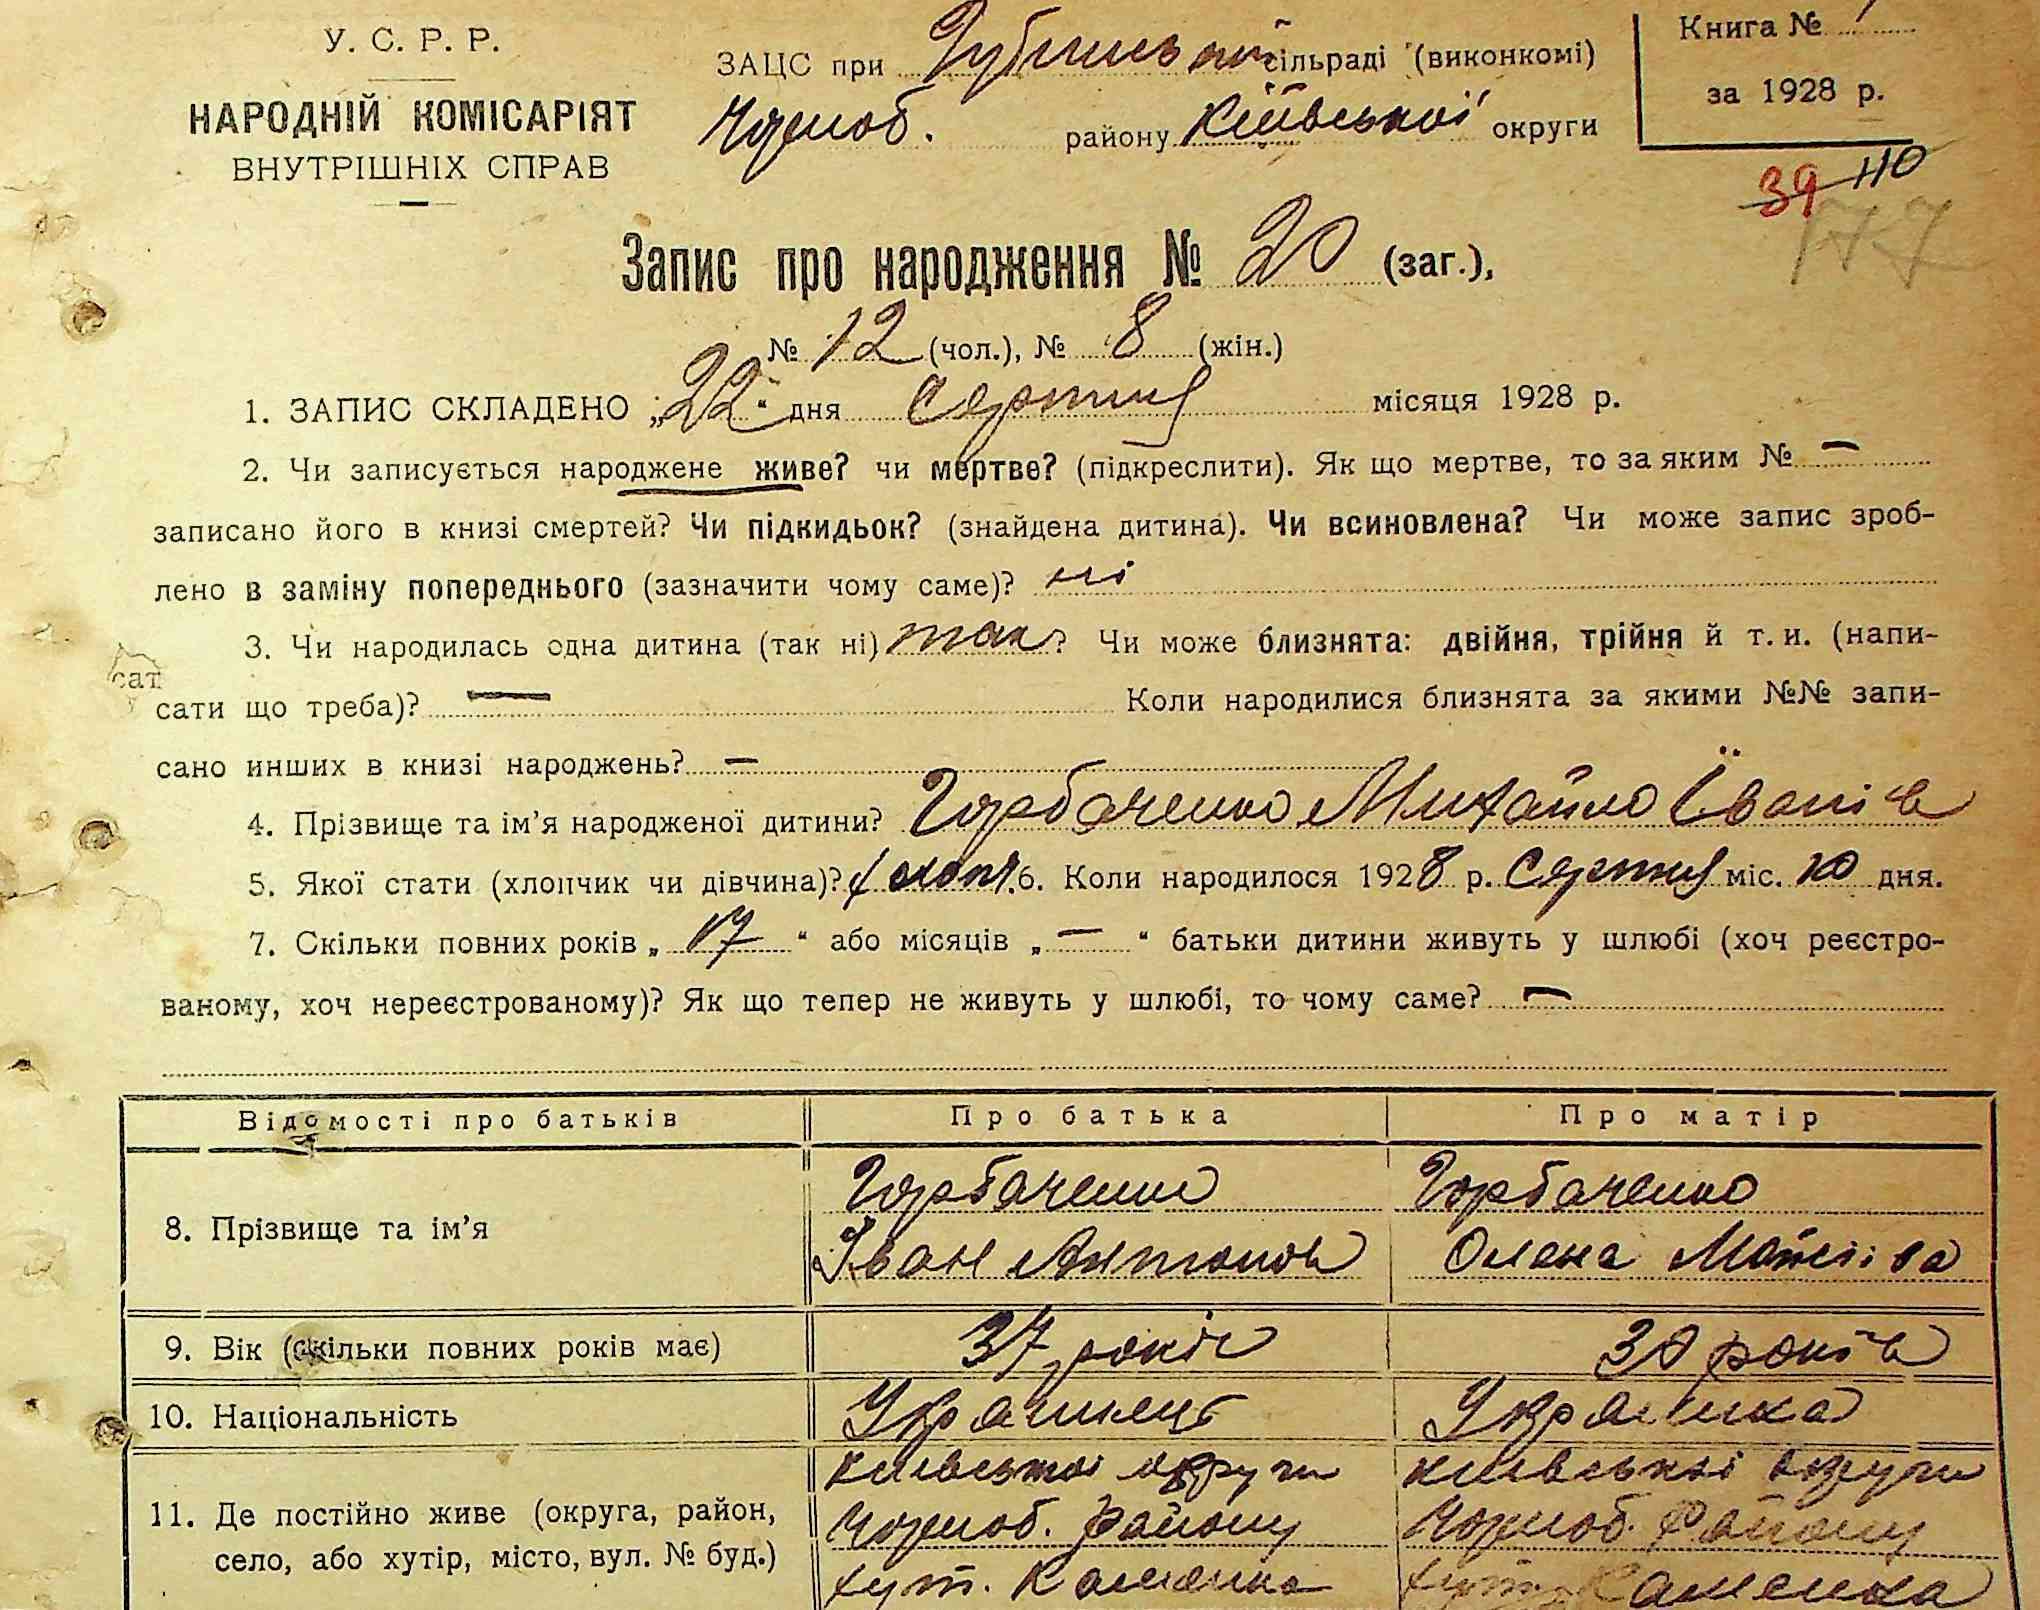 У. С. Р. Р.
НАРОДНІЙ КОМІСАРІЯТ
ВНУТРІШНІХ СПРАВ
ЗАЦС при сільраді (виконкомі)
Чорноб. району Київської округи
Книга №
за 1928 р.
39 110
77
Запис про народження № 20 (заг.),
№ 12 (чол.), № 8 (жін.)
1. ЗАПИС СКЛАДЕНО „22“ дня Серпня місяця 1928 р.
2. Чи записується народжене живе? чи мертве? (підкреслити). Як що мертве, то за яким № —
записано його в книзі смертей? Чи підкидьок? (знайдена дитина). Чи всиновлена? Чи може запис зроб-
лено в заміну попереднього (зазначити чому саме)? ні
3. Чи народилась одна дитина (так ні) так? Чи може близнята: двійня, трійня й т. и. (напи-
сат
сати що треба)? — Коли народилися близнята за якими №№ запи-
сано инших в книзі народжень? —
4. Прізвище та ім’я народженої дитини? Горбаченко Михайло Їванів
5. Якої стати (хлопчик чи дівчина)? хлопч. 6. Коли народилося 1928 р. Серпня міс. 20 дня.
7. Скільки повних років „17“ або місяців „—“ батьки дитини живуть у шлюбі (хоч реєстро-
ваному, хоч нереєстрованому)? Як що тепер не живуть у шлюбі, то чому саме? —
Відомості про батьків Про батька Про матір
8. Прізвище та ім’я
Горбаченко
Іван Антонов
Горбаченко
Олена Мойсіїва
9. Вік (скільки повних років має) 37 років 30 років
10. Національність Українець Українка
11. Де постійно живе (округа, район,
село, або хутір, місто, вул. № буд.)
Київської округи
Чорноб. району
хут. Каменка
Київської округи
Чорноб. Району
хут. Каменка